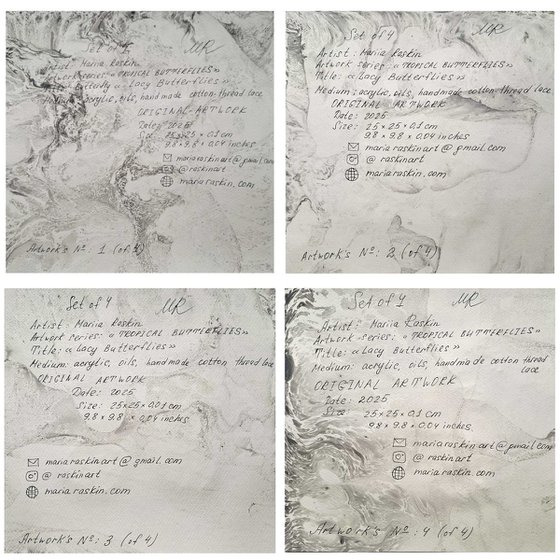 Set of 4 MR
Artist: Mariia Raskin
Artwork series: «TROPICAL BUTTERFLIES»
Title: Butterfly «Lacy Butterflies»
Medium: acrylic, oils, handmade cotton thread lace
ORIGINAL ARTWORK
Date: 2025
Size: 25×25×0.1 cm
9.8×9.8×0.04 inches
mariaraskinart@gmail.com
@raskinart
mariaraskin.com
Artwork's №: 1 (of 4)
Set of 4 MR
Artist: Mariia Raskin
Artwork series: «TROPICAL BUTTERFLIES»
Title: «Lacy Butterflies»
Medium: acrylic, oils, handmade cotton thread
lace
ORIGINAL ARTWORK
Date: 2025
Size: 25×25×0.1 cm
9.8×9.8×0.04 inches
mariaraskinart@gmail.com
@ raskinart
mariaraskin.com
Artwork's №: 2 (of 4)
Set of 4 MR
Artist: Mariia Raskin
Artwork series: «TROPICAL BUTTERFLIES»
Title: «Lacy Butterflies»
Medium: acrylic, oils, handmade cotton thread
lace
ORIGINAL ARTWORK
Date: 2025
Size: 25×25×0.1 cm
9.8×9.8×0.04 inches
mariaraskinart@gmail.com
@ raskinart
mariaraskin.com
Artwork's №: 3 (of 4)
Set of 4 MR
Artist: Mariia Raskin
Artwork series: «TROPICAL BUTTERFLIES»
Title: «Lacy Butterflies»
Medium: acrylic, oils, handmade cotton thread
lace
ORIGINAL ARTWORK
Date: 2025
Size: 25×25×0.1 cm
9.8×9.8×0.04 inches
mariaraskinart@gmail.com
@ raskinart
mariaraskin.com
Artwork's №: 4 (of 4)